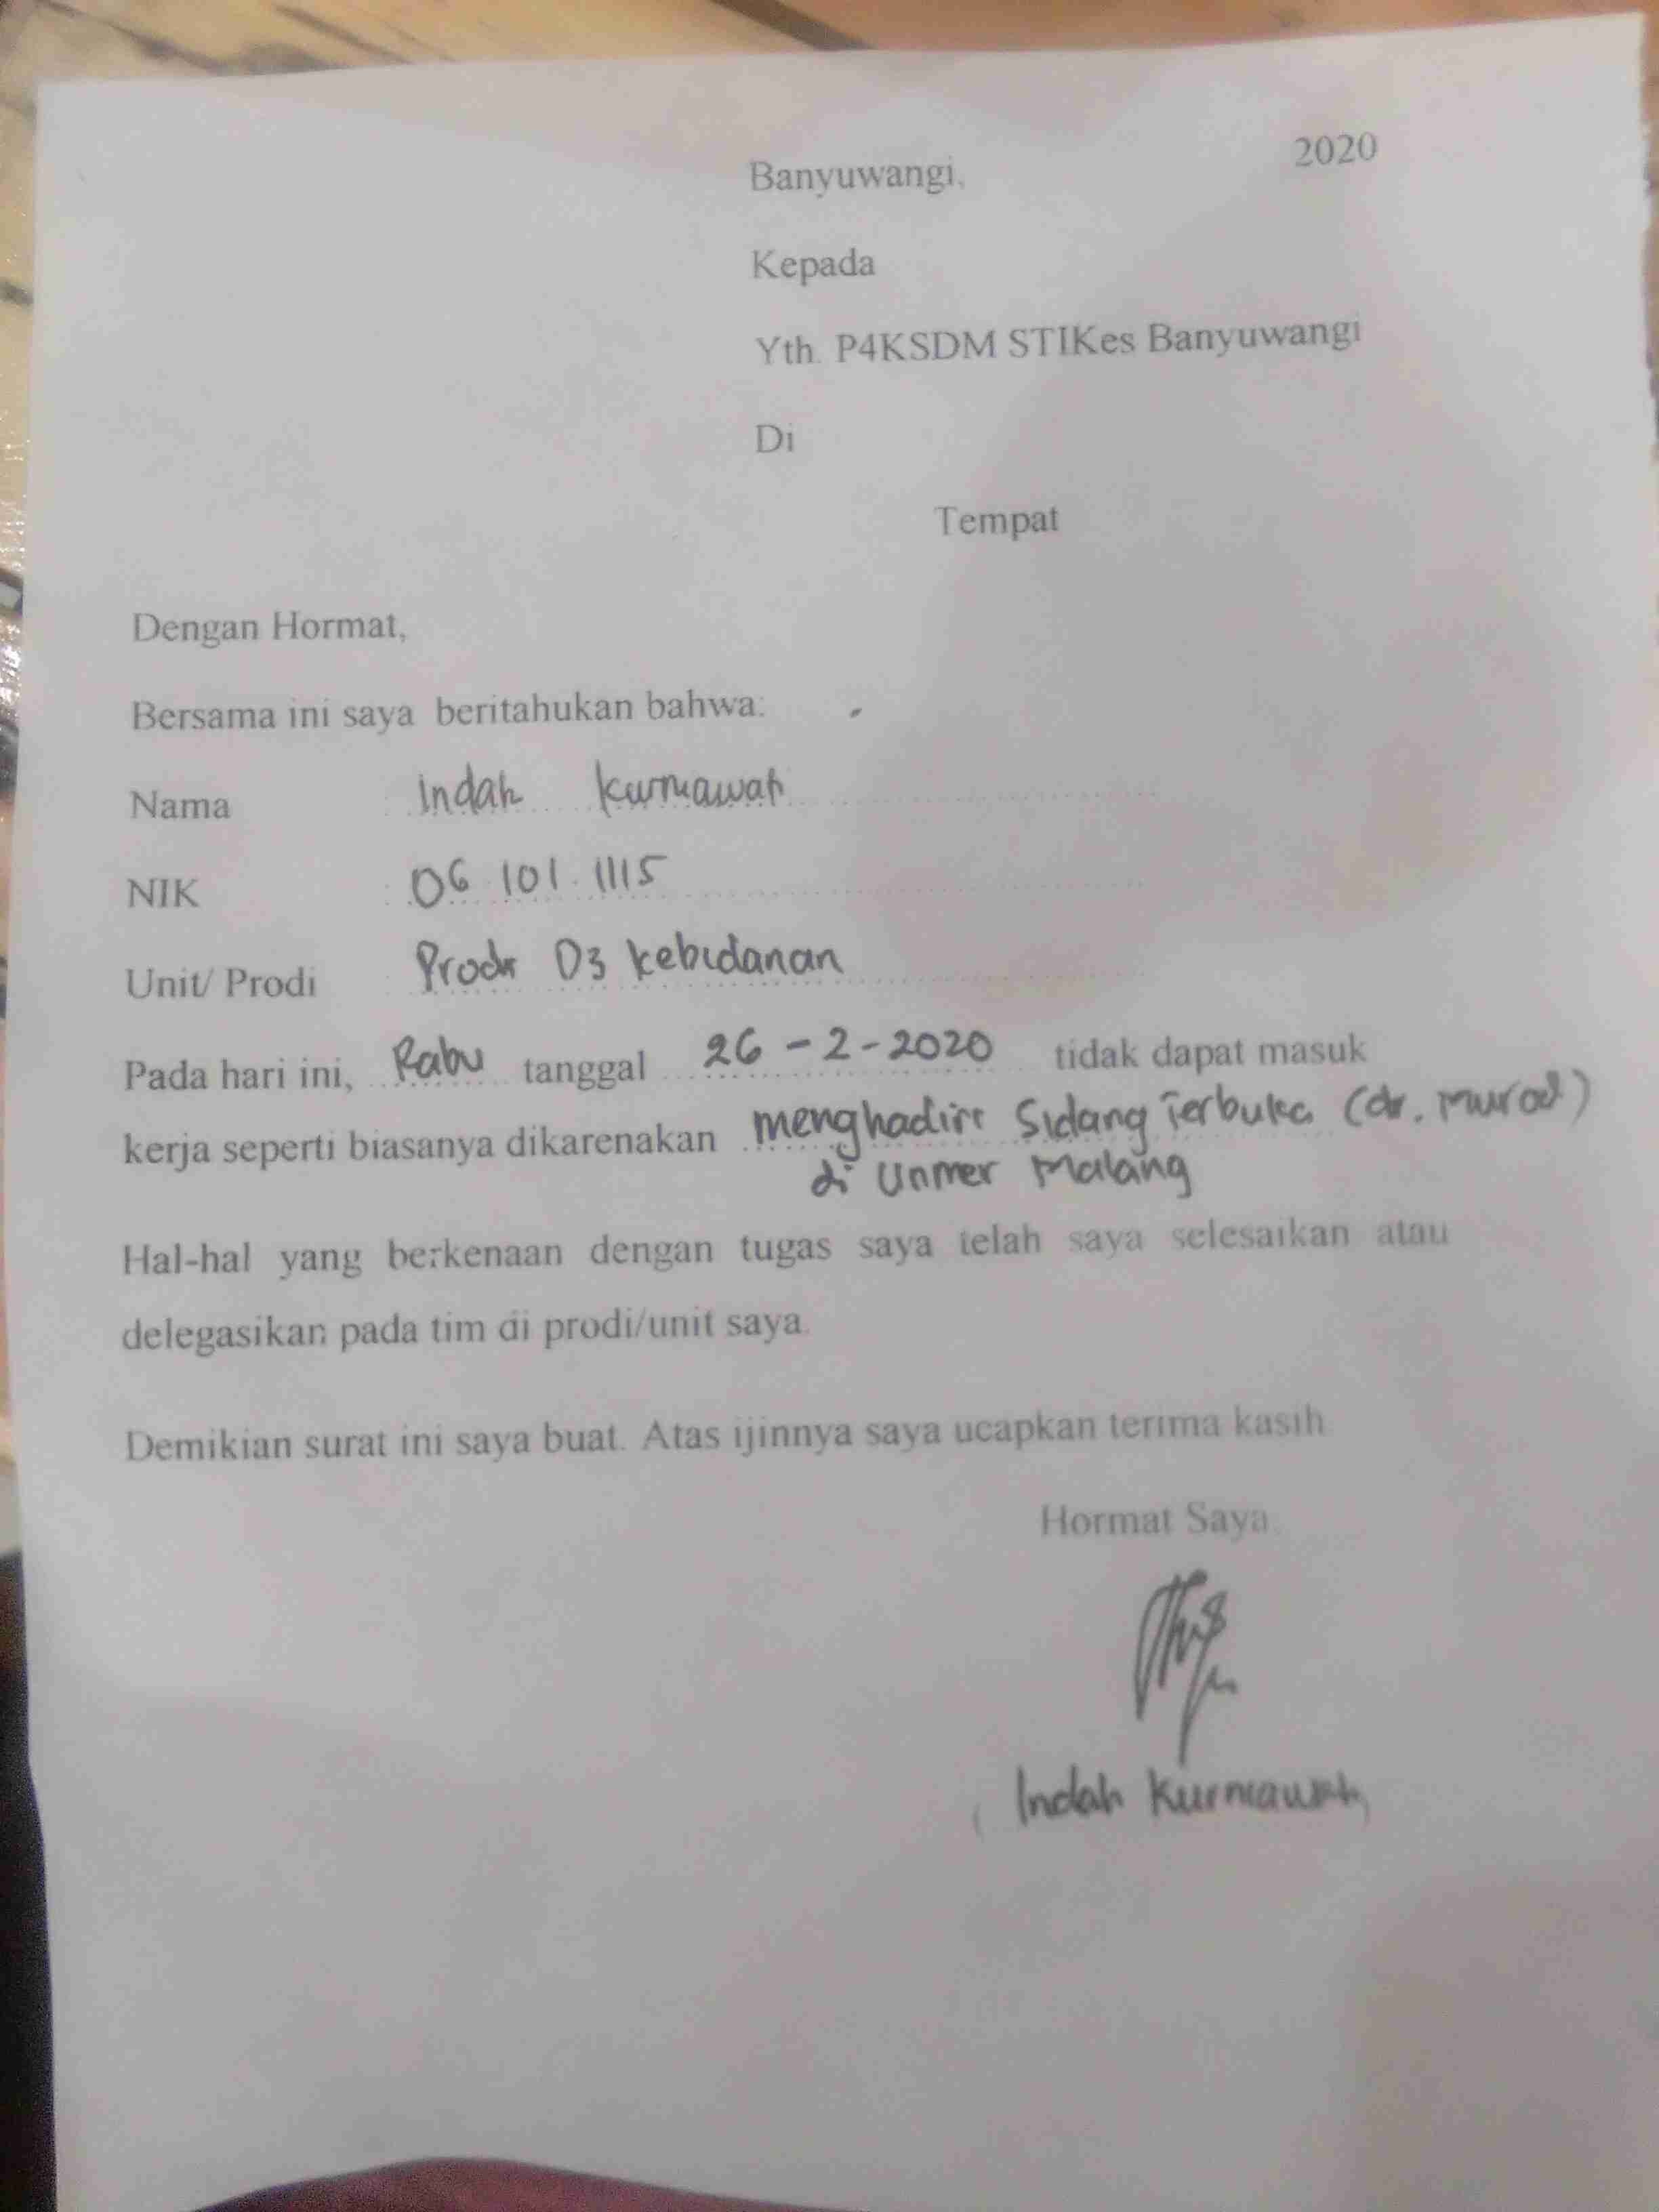 Banyuwangi, 2020
Kepada
Yth. P4KSDM STIKes Banyuwangi
Di
Tempat
Dengan Hormat,
Bersama ini saya beritahukan bahwa:
Nama Indah Kurniawati
NIK 06.101.1115
Unit/ Prodi Prodi D3 kebidanan
Pada hari ini, Rabu tanggal 26-2-2020 tidak dapat masuk
kerja seperti biasanya dikarenakan menghadiri Sidang Terbuka (dr. Murod)
di Unmer Malang
Hal-hal yang berkenaan dengan tugas saya telah saya selesaikan atau
delegasikan pada tim di prodi/unit saya.
Demikian surat ini saya buat. Atas ijinnya saya ucapkan terima kasih
Hormat Saya,
( Indah Kurniawati )